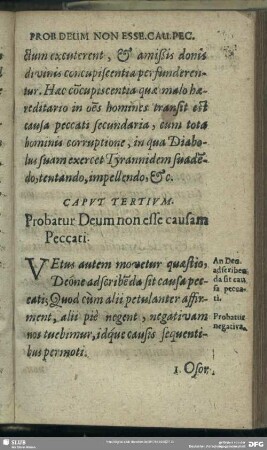 PROB. DEUM NON ESSE. CAU. PEC.
ctum excuterent, & amißis donis
divinis concupiscentia perfunderen-
tur. Hæc cõcupiscentia quæ malo hæ-
reditario in oẽs homines transit est
causa peccati secundaria, cum tota
hominis corruptione, in qua Diabo-
lus suam exercet Tyrannidem suadē-
do, tentando, impellendo, &c.
CAPVT TERTIVM.
Probatur Deum non esse causam
Peccati.
VEtus autem movetur quæstio,
Deóne adscribẽda sit causa pec-
cati; Quod cùm alii petulanter affir-
ment, alii piè negent, negativam
nos tuebimur, idq́ue causis sequenti-
bus permoti.
An Deo
adscriben
da sit cau
sa pecca-
ti.
Probatur
negativa.
1. Osor.
SLUB
DFG